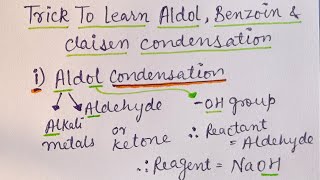 Trick To Learn Aldol, Benzoin &
Claisen condensation
i) Aldol Condensation
Alkali metals
Aldehyde or ketone
-OH group
∴ Reactant = Aldehyde
∴ Reagent = NaOH